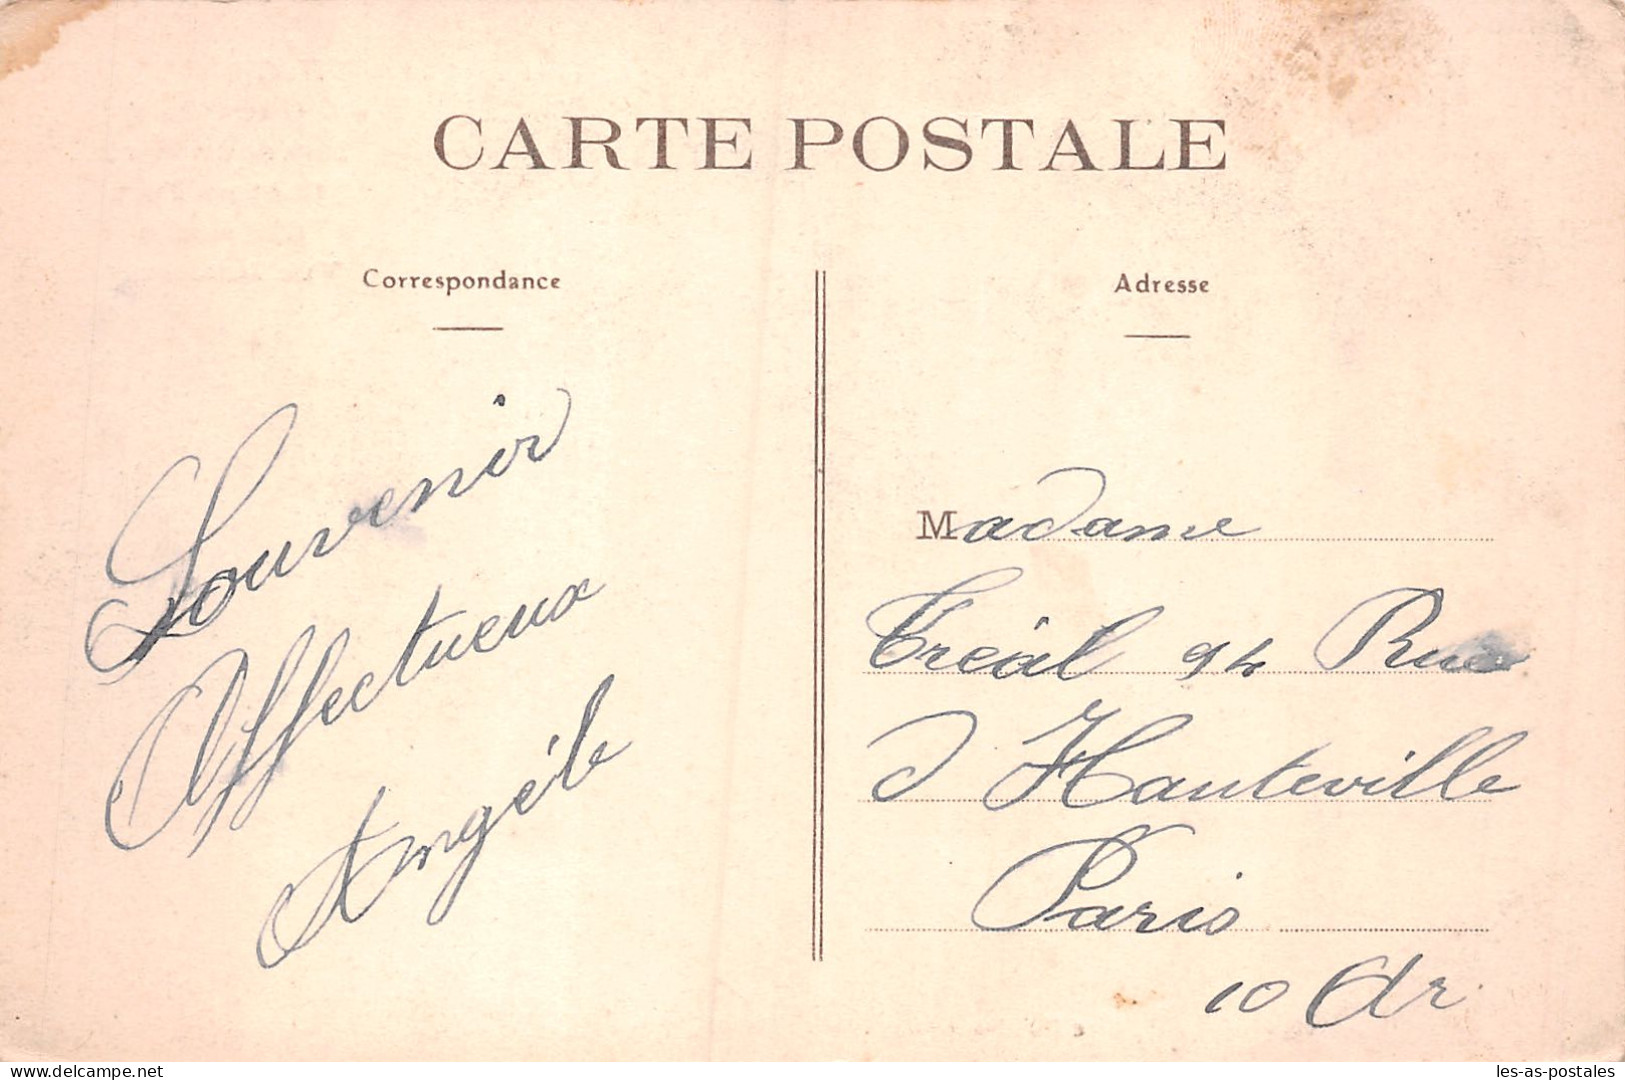 CARTE POSTALE
Correspondance
Souvenir
Affectueux
Angèle
Adresse
Madame
Tréal 94 Rue
d'Hauteville
Paris
10 Ar
delcampe.net
les-as-postales